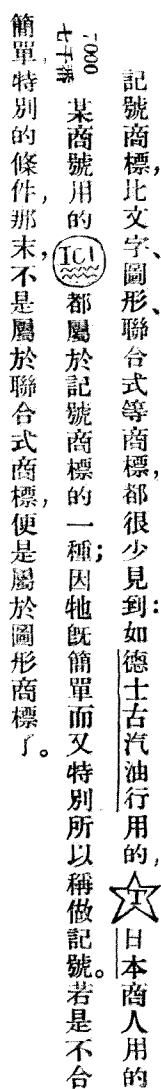 記號商標,比文字、圖形、聯合式等商標,都很少見到:如德士古汽油行用的,T日本商人用的
7000 七千番 某商號用的ICI都屬於記號商標的一種;因牠既簡單而又特別所以稱做記號。若是不合
簡單,特別的條件,那末,不是屬於聯合式商標,便是屬於圖形商標了。